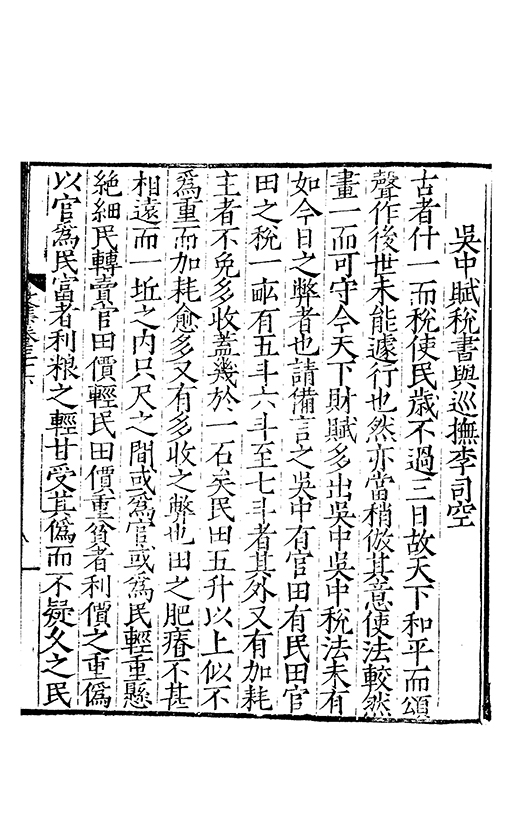 吳中賦稅書與巡撫李司空
古者什一而稅使民歲不過三日故天下和平而頌
聲作後世未能遽行也然亦當稍倣其意使法較然
畫一而可守今天下財賦多出吳中吳中稅法未有
如今日之弊者也請備言之吳中有官田有民田官
田之稅一畝有五斗六斗至七斗者其外又有加耗
主者不免多收蓋幾於一石矣民田五升以上似不
為重而加耗愈多又有多收之弊也田之肥瘠不甚
相遠而一坵之內只尺之間或為官或為民輕重懸
絶細民轉賣官田價輕民田價重貧者利價之重偽
以官為民富者利粮之輕甘受其偽而不疑久之民